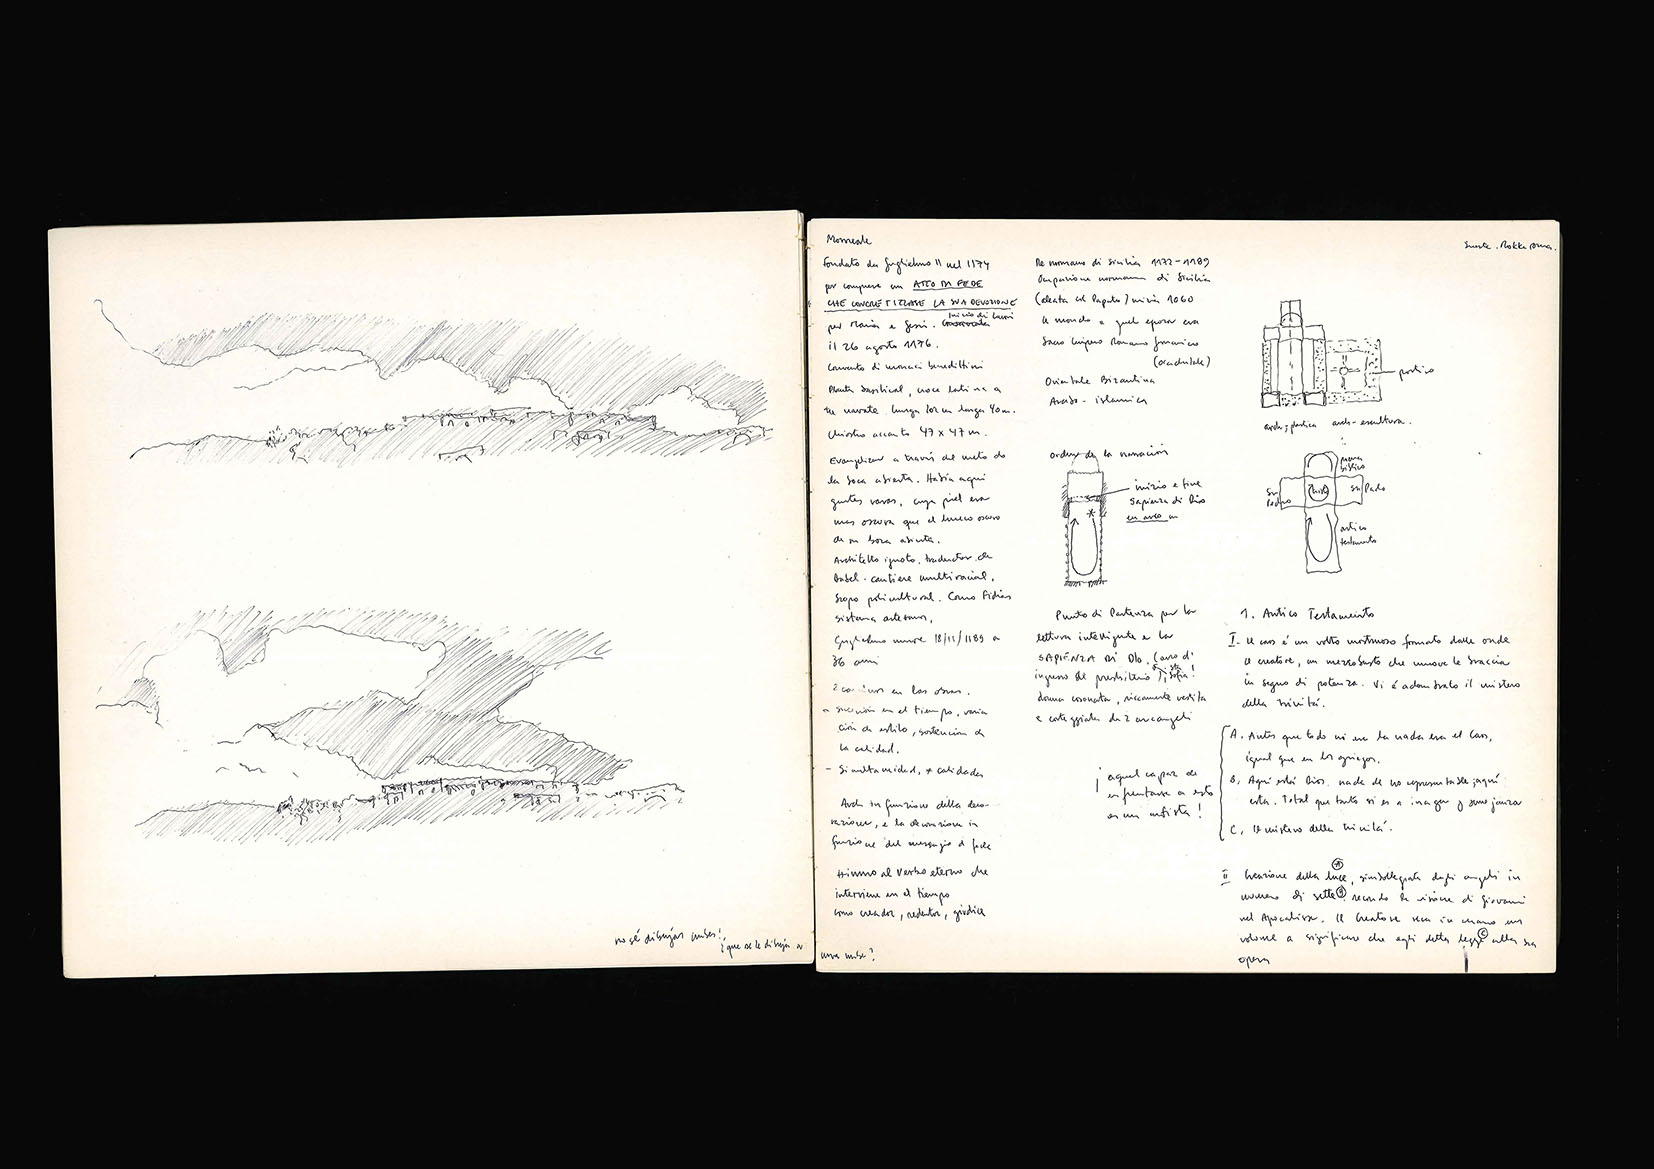 no sé dibujar nubes!,
¿que se le dibuja a
una nube?
Monreale
Fondato da Guglielmo II nel 1174
per compiere un ATTO DI FEDE
CHE CONCRETIZZASSE LA SUA DEVOZIONE
per Maria e Gesù. inizio di lavori
il 26 agosto 1176.
Convento di monaci benedittini
Planta basilical, croce latina a
tre navate. lunga 102 m larga 40 m.
Chiostro accanto 47 x 47 m.
Evangelizar a través del meto de
la boca abierta. Había aquí
gentes varas, cuya piel era
mas oscura que el hueco oscuro
de su boca abierta.
Architetto ignoto, traductor de
Babel - cantiere multirazial,
Scopo policultural. Como Fidias
sistema artesano,
Guglielmo muore 18/11/1189 a
36 anni
2 caminos en las obras.
- sucesión en el tiempo, varia
ción de estilo, sostención de
la calidad.
- Simultaneidad, + calidades
Arch in funzione della deco-
razione, e la decorazione in
funzione del messagio d fede
Hinno al Verbo eterno che
interviene en el tiempo
como creador, redentor, giudice
Re normano di Sicilia 1172-1189
Ocupazione normanna di Sicilia
(aleata col Papato) inizia 1060
Il mondo a quel epoca era
Sacro Impero Romano Germanico
(occidentale)
Orientale Bizantina
Arabo - islamica
orden de la narración
inizio e fine
sapienza di Dio
en arco
Punto di Partenza per la
lettura intelligente e la
SAPIENZA DI DIO, (arco di
ingreso del presbiterio), Sta Sofia!
donna coronata, riccamente vestita
e corteggiata da 2 arcangeli
¡ aquel capaz de
enfrentarse a esto
es un artista!
portico
arch; plastica arch-escultura.
nuova
biblico
San
Pedro
Cristo
San Paolo
antico
testamento
1. Antico Testamento
I- Il caos é un volto mostruoso formato dalle onde
Il creatore, un mezzobusto che muove le braccia
in segno di potenza. Vi é adombrato il mistero
della trinitá.
A. Antes que todo ni era la nada era el Caos,
igual que en los griegos.
B. Aquí está Dios. nada de no representable; aquí
esta. Total que tanto si es a imagen y semejanza
C. Il mistero della trinitá.
II Creazione della luce, simboleggiata dagli angeli in
numero di sette secondo la visione di Giovanni
nel Apocalisse. Il Creatore reca in mano un
volume a significare che egli detta legge alla sua
opera